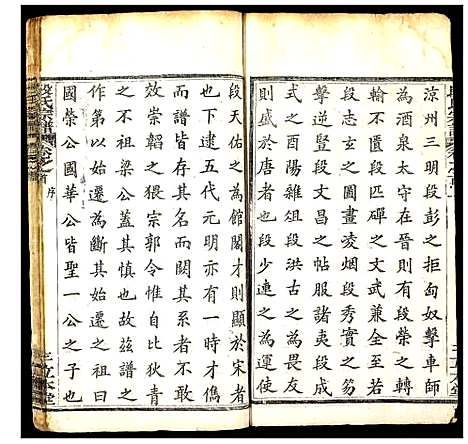 涼州三明段彭之拒匈奴擊車師
為酒泉太守在晉則有段榮之轉
輸不匱段匹磾之文武兼善唐則
段志玄之圖畫凌烟段秀實之笏
擊逆豎段文昌之帖服諸夷段成
式之酉陽雜俎段洪古之忠諫宋
則盛於唐者有段少連之為運使
段天佑之為館閣才則顯於宋者
也下逮五代元明以來才非不儁
而譜皆名而闕其系示不
故崇韜之猥宗郭令惟自比狄青
之不祖梁公蓋其慎也故茲譜之
作第以始遷為斷其始遷之祖曰
國榮公國華公皆聖一公之子也
段氏宗譜 卷之首 序
三立本堂